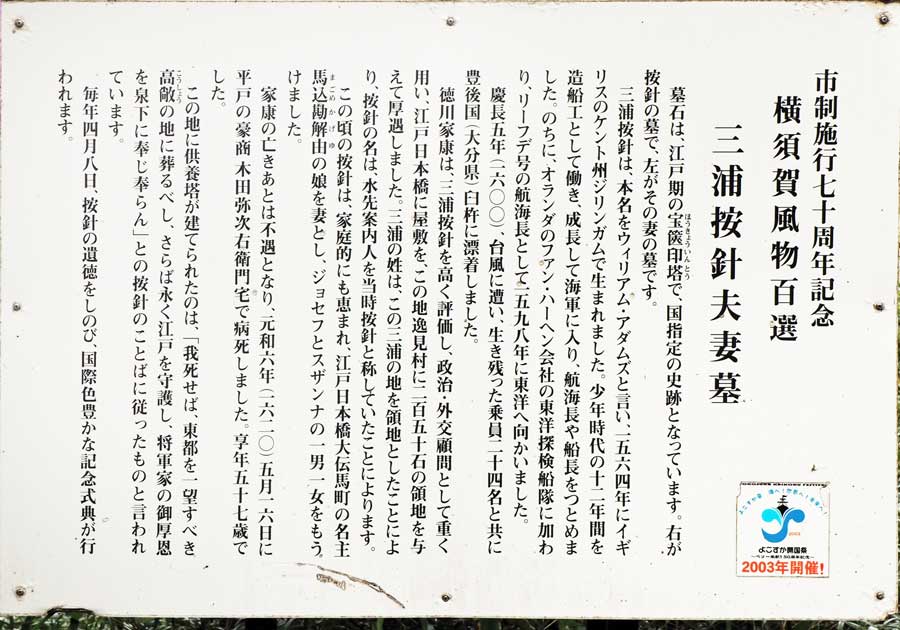 市制施行七十周年記念
横須賀風物百選
三浦按針夫妻墓
墓石は、江戸期の宝篋印塔で、国指定の史跡となっています。右が
ほうきょういんとう
按針の墓で、左がその妻の墓です。
三浦按針は、本名をウィリアム・アダムズと言い、一五六四年にイギ
リスのケント州ジリンガムで生まれました。少年時代の十二年間を
造船工として働き、成長して海軍に入り、航海長や船長をつとめま
した。のちに、オランダのファン・ハーヘン会社の東洋探検船隊に加わ
り、リーフデ号の航海長として一五九八年に東洋へ向かいました。
慶長五年(一六〇〇)、台風に遭い、生き残った乗員二十四名と共に
豊後国(大分県)臼杵に漂着しました。
徳川家康は、三浦按針を高く評価し、政治・外交顧問として重く
用い、江戸日本橋に屋敷を、この地逸見村に二百五十石の領地を与
えて厚遇しました。三浦の姓は、この三浦の地を領地としたことによ
り、按針の名は、水先案内人を当時按針と称していたことによります。
この頃の按針は、家庭的にも恵まれ、江戸日本橋大伝馬町の名主
馬込勘解由の娘を妻とし、ジョセフとスザンナの一男一女をもう
まごめかげゆ
けました。
家康の亡きあとは不遇となり、元和六年(一六二〇)五月一六日に
平戸の豪商 木田弥次右衛門宅で病死しました。享年五十七歳で
した。
この地に供養塔が建てられたのは、「我死せば、東都を一望すべき
高敞の地に葬るべし、さらば永く江戸を守護し、将軍家の御厚恩
こうしょう
を泉下に奉じ奉らん」との按針のことばに従ったものと言われ
ています。
毎年四月八日、按針の遺徳をしのび、国際色豊かな記念式典が行
われます。
2003
よこすか開国祭
2003年開催!